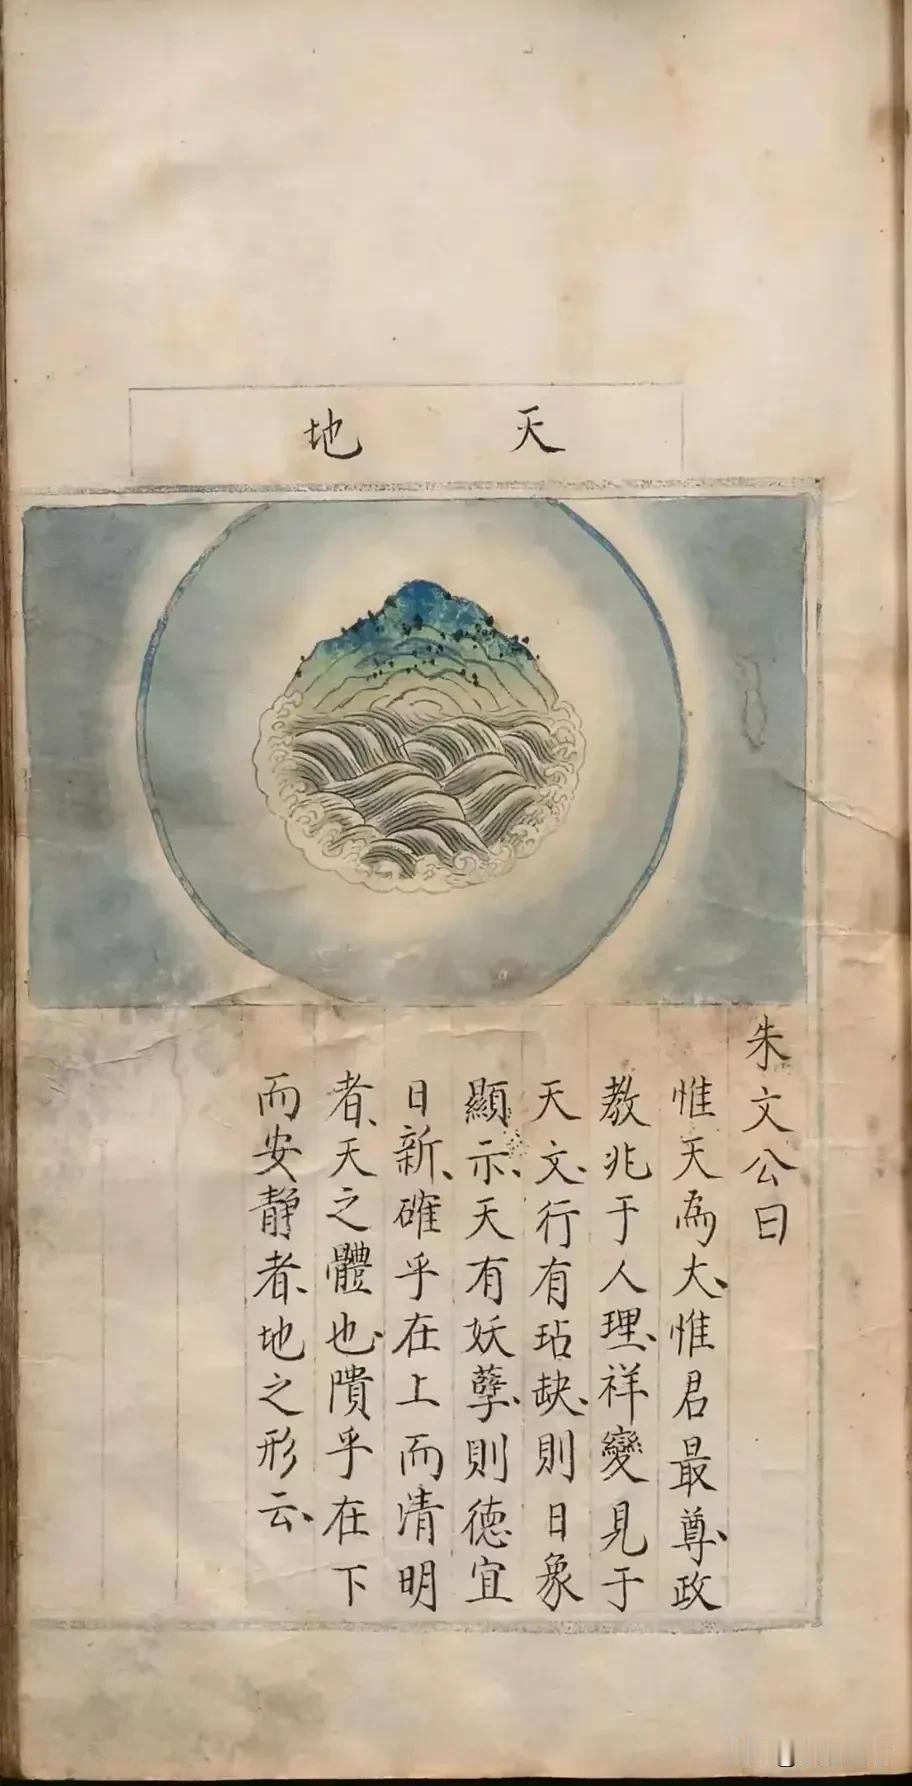 天地
朱文公曰
惟天為大、惟君最尊、政
教兆于人理、祥變見于
天文、行有玷缺、則日象
顯示、天有妖孽、則德宜
日新、確乎在上而清明
者、天之體也、隤乎在下
而安靜者、地之形云、